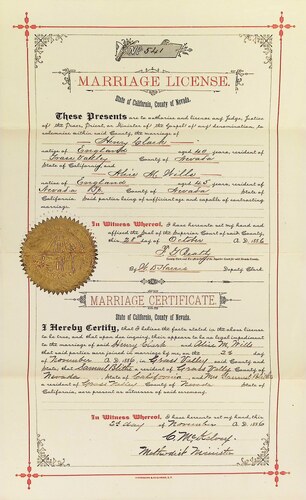 No 541
MARRIAGE LICENSE.
State of California, County of Nevada.
These Presents are to authorize and license any Judge, Justice
of the Peace, Priest, or Minister of the Gospel of any denomination, to
solemnize within said County, the marriage of
Henry Clark
native of England aged 40 years, resident of
Grass Valley County of Nevada
State of California, and
Alice M. Wills
native of England aged 45 years, resident of
Nevada County of Nevada
State of California. Said parties being of sufficient age and capable of contracting
marriage.
In Witness Whereof, I have hereunto set my hand and
affixed the Seal of the Superior Court of said County,
this 28 day of October A. D. 1886
By Deputy Clerk
MARRIAGE CERTIFICATE
State of California, County of Nevada.
I Hereby Certify, that I believe the facts stated in the above license
to be true, and that upon due inquiry, there appears to be no legal impediment
to the marriage of said Henry Clark and Alice M. Wills
that said parties were joined in marriage by me on the 2d day
of November A. D. 1886, in Grass Valley County and
State; that Samuel a resident of Grass Valley County of
Nevada State of California and Mrs Samuel
a resident of County of Nevada State of
California, were present as witnesses of said ceremony.
In Witness Whereof, I have hereunto set my hand, this
2d day of November A. D. 1886
Methodist Minister